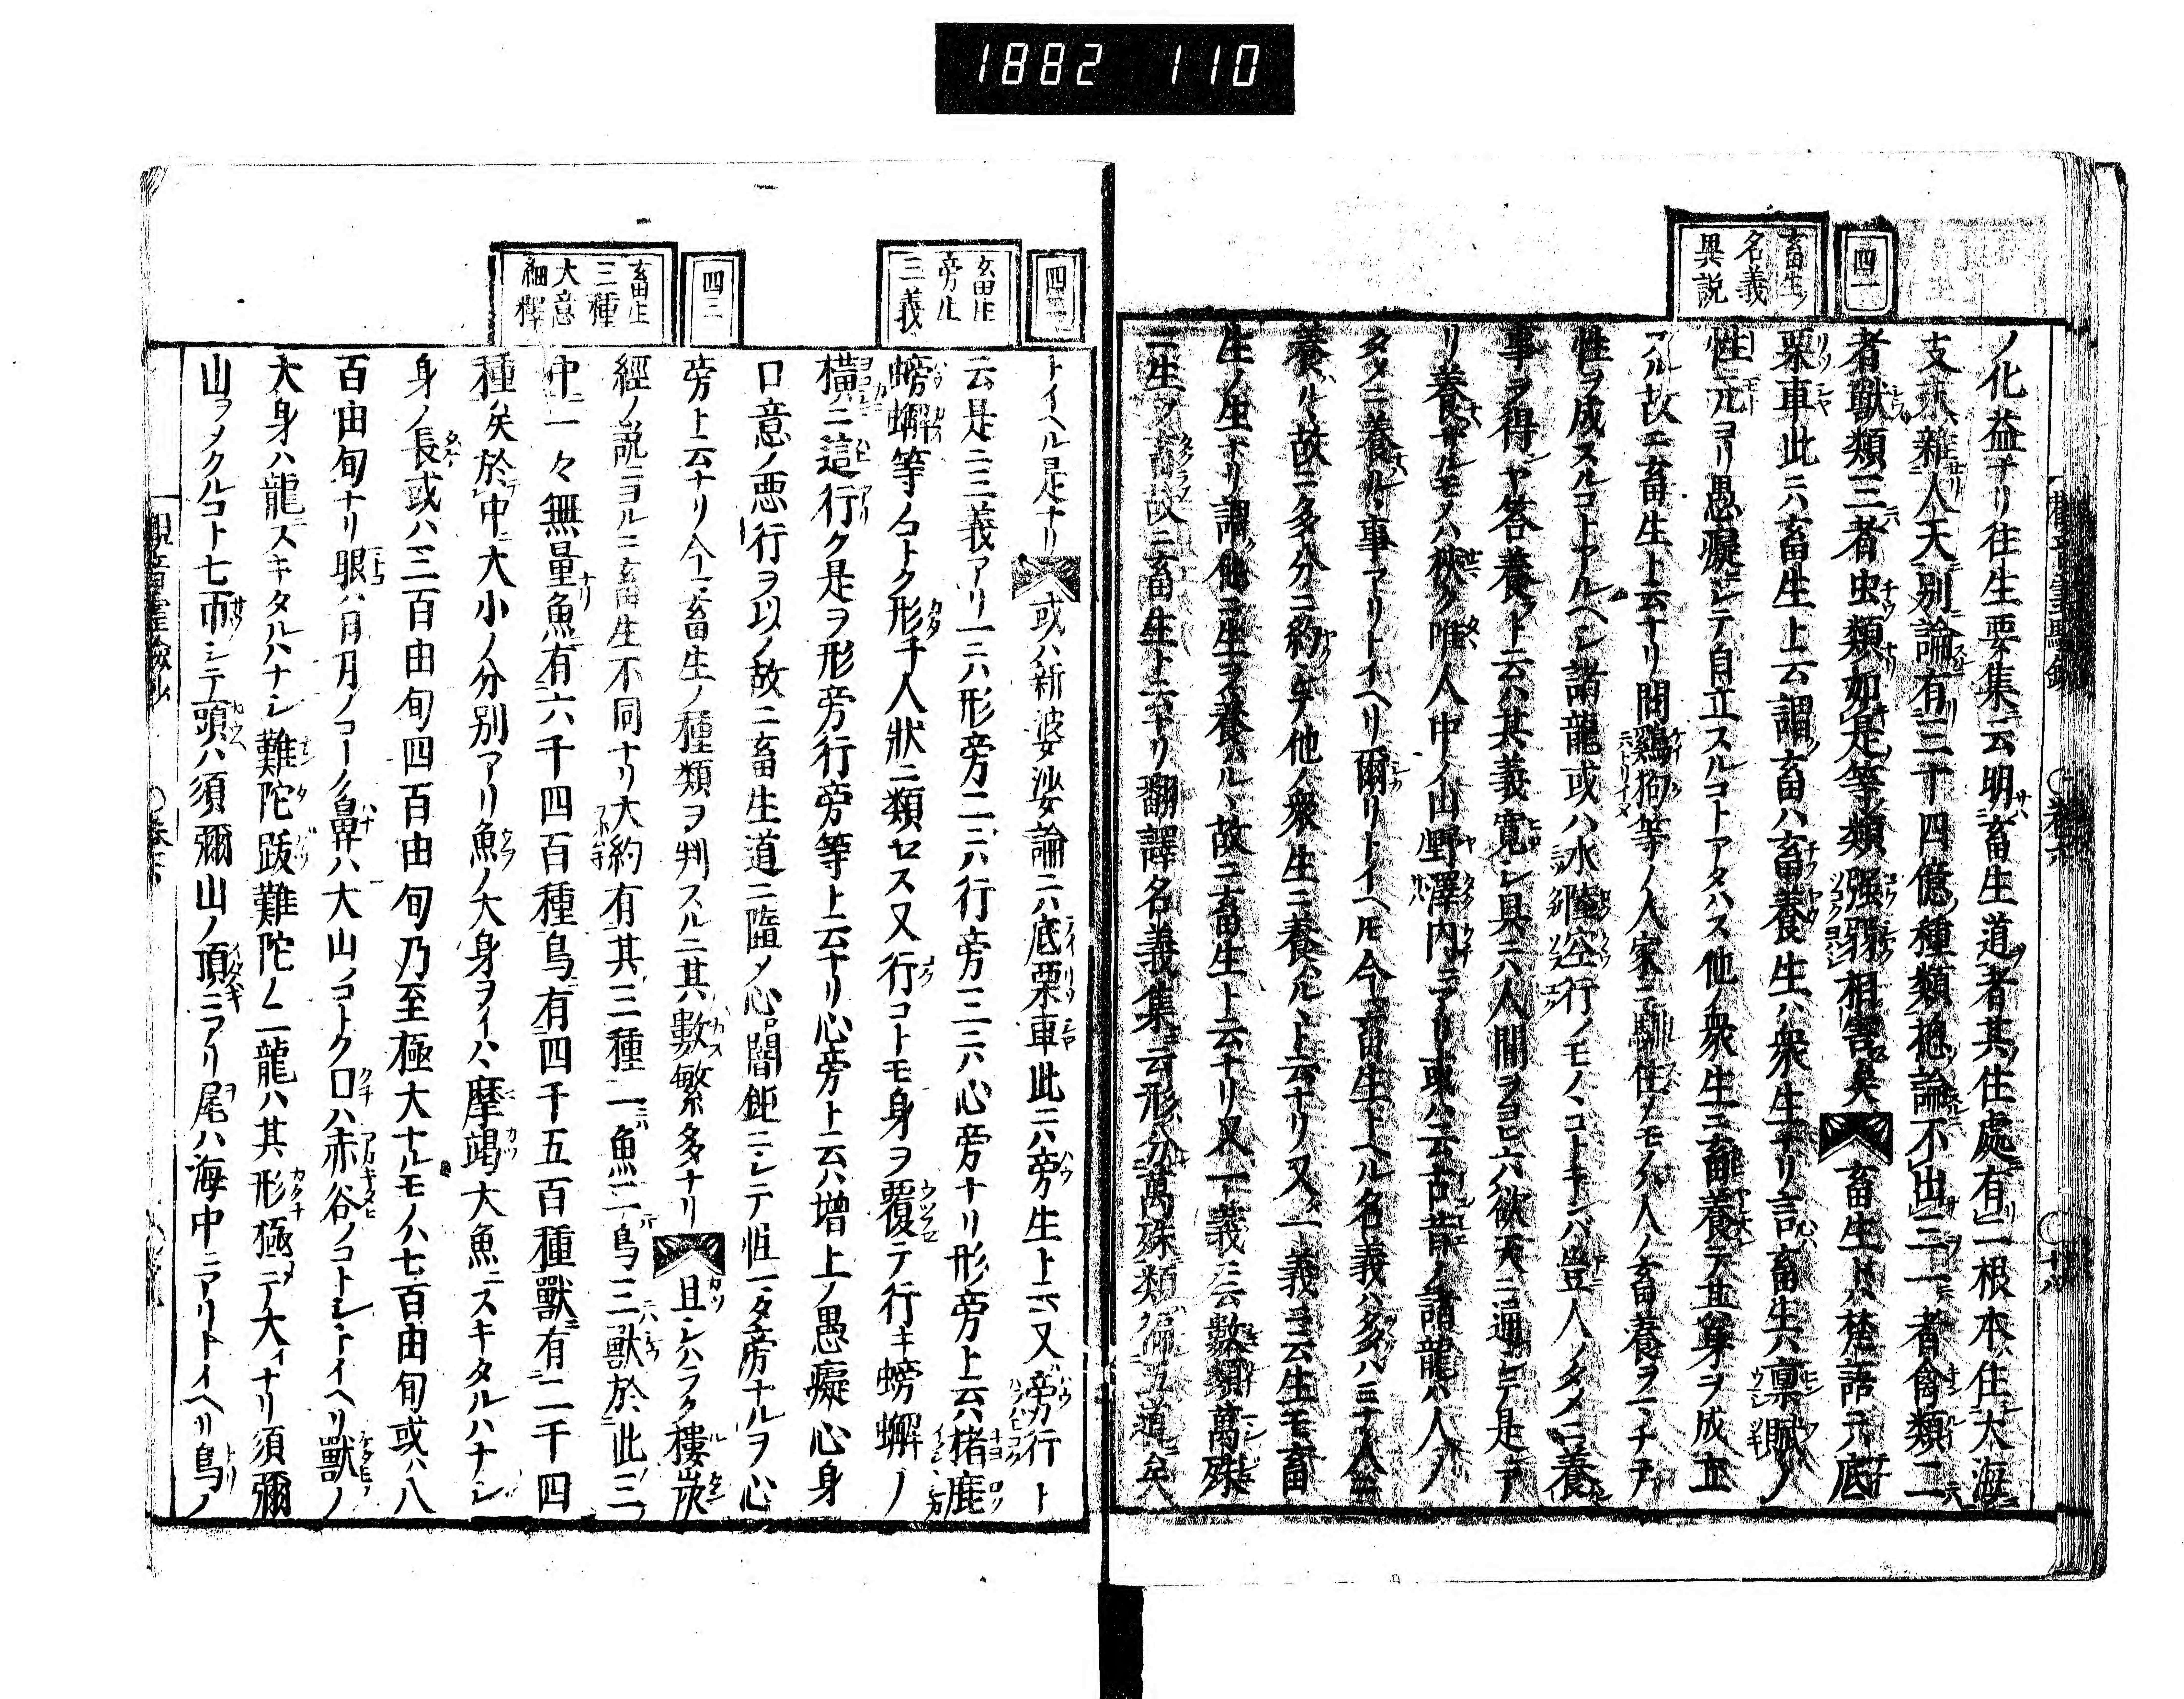 1882 110
四一
畜生ノ
名義
異説
ノ化益ナリ往生要集云明畜生道者其住處有二根本住大海
支末雜人天別論有三十四億種類摠論不出三一者禽類二
者獸類三者虫類如是等類强弱相害矣 畜生トハ梵語ニハ底
栗車此ニハ畜生ト云謂畜ハ畜養生ハ衆生ナリ言畜生ハ禀賦ノ
性元ヨリ愚癡ニシテ自立スルコトアタハス他ノ衆生ニ畜養テ其身ヲ成立
アル故ニ畜生ト云ナリ問鷄狗等ノ人家ニ馴住ノモノハ人ノ畜養ヲマチテ
性ヲ成スルコトアルヘシ諸龍或ハ水陸空行ノモノヽコトキンバ豈人ノタメニ養
事ヲ得ンヤ答養ト云ハ其義寬シ具ニハ人間ヲヨヒ六欲天ニ通シテ是ア
リ養サルモノハ狹ク唯人中ノ山野澤内ニアリ或ハ云古昔ノ諸龍ハ人ノ
タメニ養ルヽ事アリトイヘリ爾リトイヘモ今畜生トヘル名義ハ多ハ三千人ニ
養ルヽ故ニ多分ニ約シテ他ノ衆生ニ養ハルヽト云ナリ又一義ニ云生モ畜
生ノ生ナリ謂他ニ生ヲ養ハルヽ故ニ畜生ト云ナリ又一義ニ云數類萬殊
ニ生ヲ畜故ニ畜生ト云ナリ翻譯名義集云形分萬殊類徧五道矣
四二
畜生
旁生
三義
トイヘル是ナリ 或ハ新婆娑論ニハ底栗車此ニハ旁生ト云又旁行ト
云是ニ三義アリ一ニハ形旁二ニハ行旁三ニハ心旁ナリ形旁ト云ハ猪鹿
螃蠏等ノコトク形チ人狀ニ類セス又行コトモ身ヲ覆テ行キ螃蠏ノ
橫ニ這行ク是ヲ形旁行旁等ト云ナリ心旁ト云ハ增上ノ愚癡心身
口意ノ惡行ヲ以ノ故ニ畜生道ニ墮メ心闇鈍ニシテ恒ニ旁ナルヲ心
旁ト云ナリ今畜生ノ種類ヲ判スルニ其數繁多ナリ 且シハラク樓炭
四三
畜生
三種
大意
細釋
經ノ説ニヨルニ畜生不同ナリ大約有其三種一魚二鳥三獸於此三ノ
中一々無量魚有六千四百種鳥有四千五百種獸有二千四
種矣於中大小ノ分別アリ魚ノ大身ヲイハヽ摩竭大魚ニスキタルハナシ
身ノ長或ハ三百由旬四百由旬乃至極大ナルモノハ七百由旬或ハ八
百由旬ナリ眼ハ日月ノコトク鼻ハ大山ノコトク口ハ赤谷ノコトシトイヘリ獸ノ
大身ハ龍ニスキタルハナシ難陀跋難陀ノ二龍ハ其形極テ大イナリ須彌
山ヲメクルコト七帀シテ頭ハ須彌山ノ頂ニアリ尾ハ海中ニアリトイヘリ鳥ノ